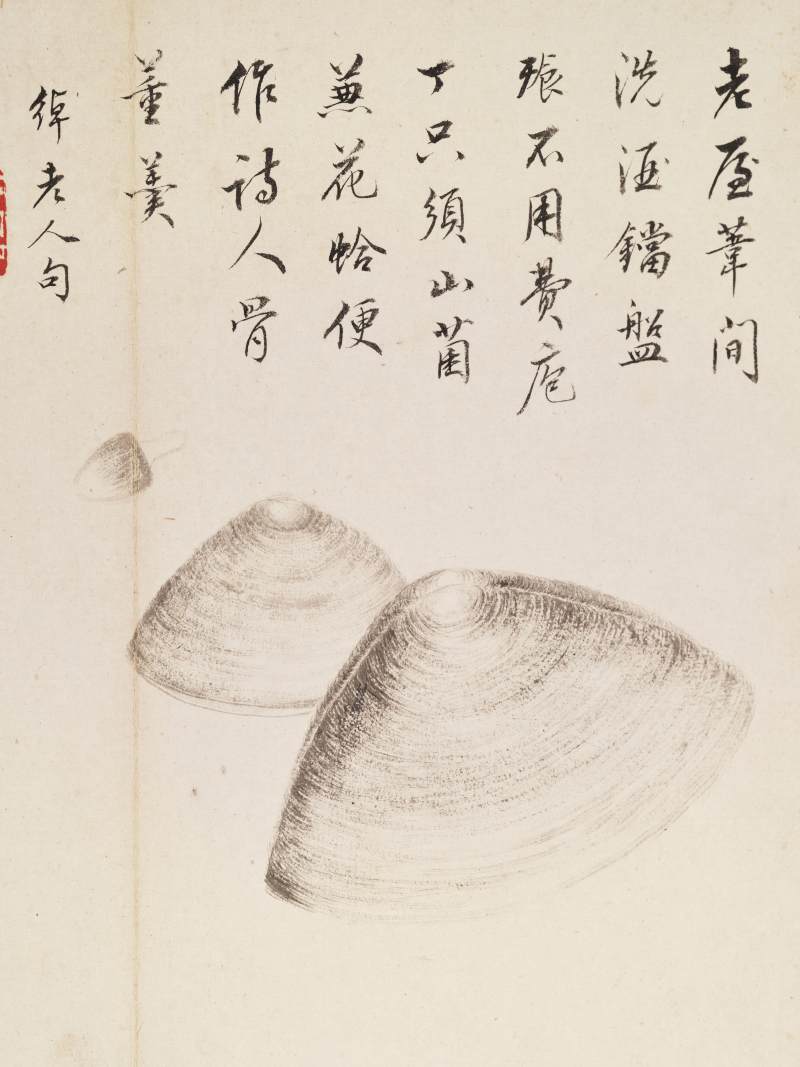 老屋葦間
洗酒鐺盤
飱不用費庖
丁只須山菌
兼花蛤便
作詩人骨
董羹
綽老人句